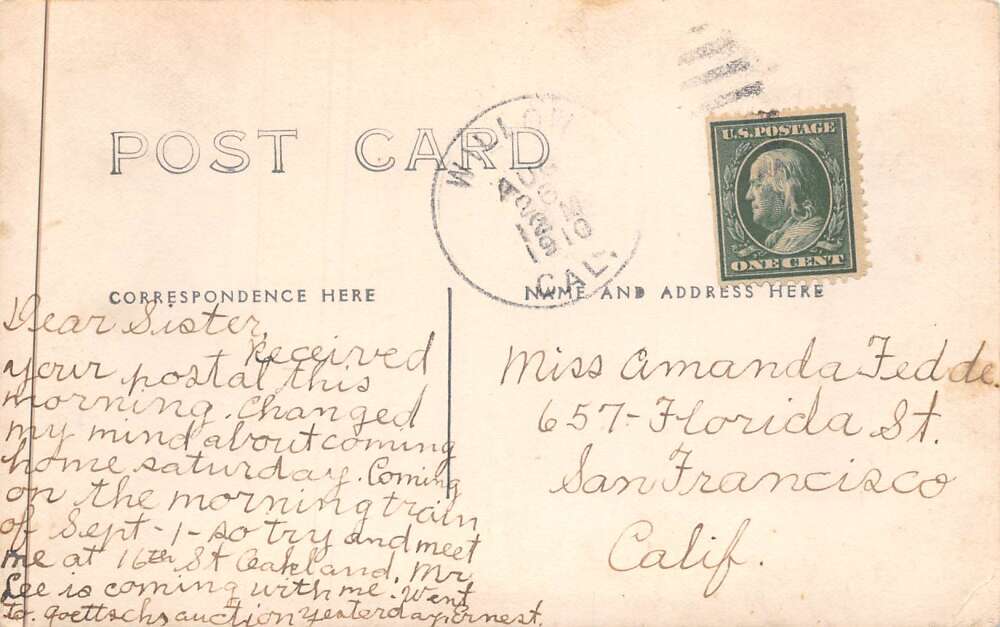 POST CARD
WILLOW
AUG
1910
CAL.
U.S. POSTAGE
ONE CENT
CORRESPONDENCE HERE
NAME AND ADDRESS HERE
Dear Sister,
Received
your postal this
morning. Changed
my mind about coming
home saturday. Coming
on the morning train
of Sept-1-so try and meet
me at 16th St Oakland. Mr
Lee is coming with me. Went
to. goettschs auction yesterday. Ernest.
Miss Amanda Fedde.
657-Florida St.
San Francisco
Calif.